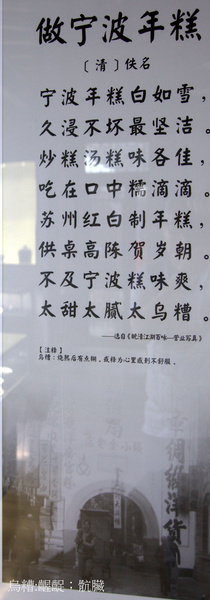 做宁波年糕
〔清〕佚名
宁波年糕白如雪，
久浸不坏最坚洁。
炒糕汤糕味各佳，
吃在口中糯滴滴。
苏州红白制年糕，
供桌高陈贺岁朝。
不及宁波糕味爽，
太甜太腻太乌糟。
——选自《晚清江湖百味—营业写真》
【注释】
乌糟：烧熟后有点糊，或指为心里感到不舒服。
绸缎洋货
乌糟:龌龊；骯臟